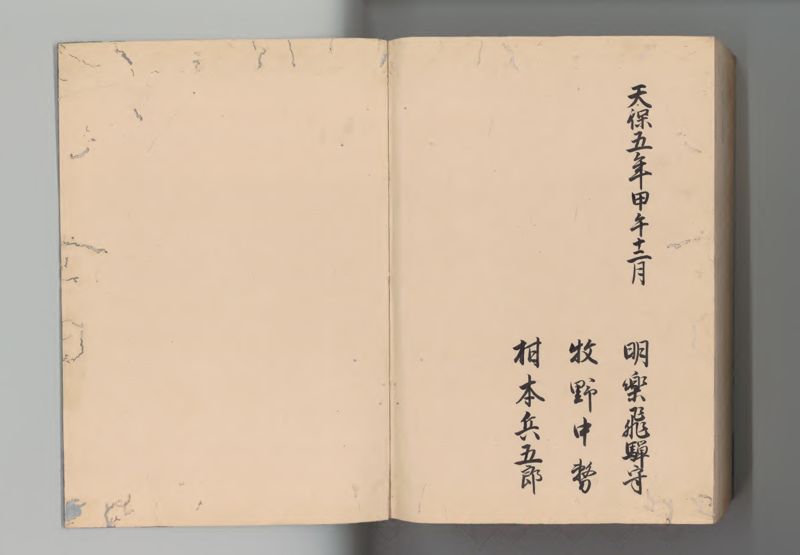 天保五年甲午十二月
明樂飛驒守
牧野中務
村本兵五郎